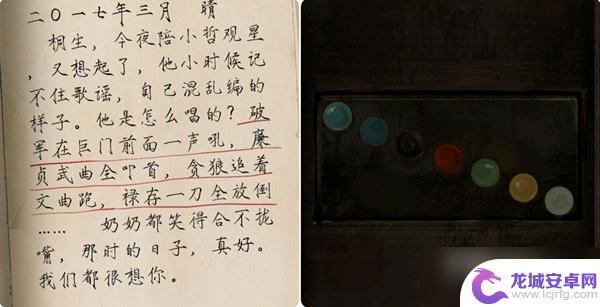 二〇一七年三月 晴
桐生，今夜陪小哲观星
，又想起了，他小时候记
不住歌谣，自己混乱编的
样子。他是怎么唱的？破
军在巨门前面一声吼，廉
贞武曲全叩首，贪狼追着
文曲跑，禄存一刀全放倒
……
奶奶都笑得合不拢
嘴，那时的日子，真好。
我们都很想你。
龙城安卓网
www.lcjrfg.com